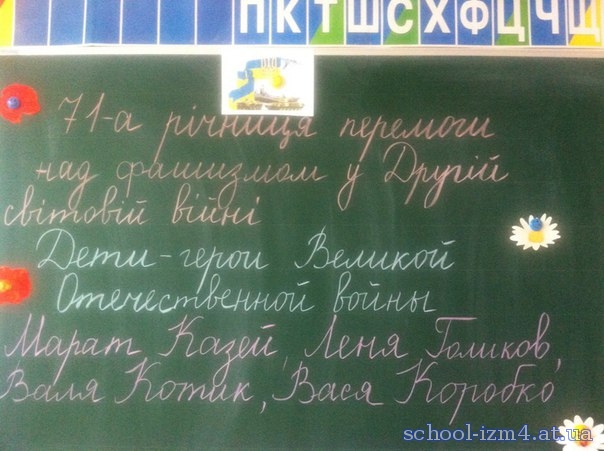 П К Т Ш С Х Ф Ц Ч Щ
71-а річниця перемоги
над фашизмом у Другій
світовій війні
Дети-герои Великой
Отечественной войны
Марат Казей, Леня Голиков,
Валя Котик, Вася Коробко
school-izm4.at.ua